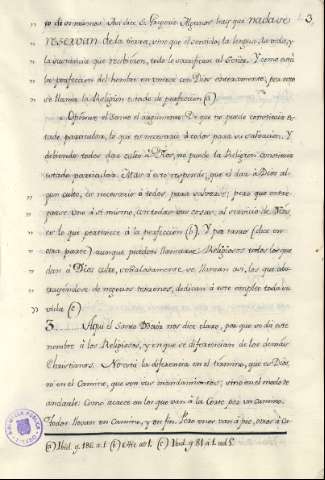 3
nada se
reservan de la tierra, sino que el sentido, la lengua, la vida, y
la sustancia que recibieron, todo lo sacrifican al Señor. Y como está
la perfeccion del hombre en unirse con Dios enteramente, por esto
se llama la Religion estado de perfeccion (a)
Oponese el Santo el argumento. De que no puede constituir es-
tado particular, lo que es necesario á todos para su salvacion. Y
debiendo todos dar culto á Dios, no puede la Religion constituir
estado particular. Mas á esto responde; que el dar á Dios al-
gun culto, es necesario á todos para salvarse; pero que
uno á si mismo, con todas sus cosas, al servicio de Dios,
es lo que pertenece á la perfeccion (b). Y por tanto (dice en
otra parte) aunque pueden llamarse Religiosos todos los que
dan á Dios culto, señaladamente se llaman asi, los que abs-
trayendose de negocios estraños, dedican á este empleo toda su
vida (c)
3. Aqui el Santo Doctor nos dice claro, por que se dá este
nombre á los Religiosos, y en que se diferencian de los demás
Christianos. No está la diferencia en el termino, que es Dios,
ni en el Camino, que son sus mandamientos; sino en el modo de
andarle. Como acaece en los que van á la Corte por un camino.
Todos llevan un Camino, y un fin. Pero unos van á pie, otros á Ca-
(a) Ibid. q. 186. a. 1. (b) ad 1. (c) Ibid. q. 81. a. 1. ad 5.